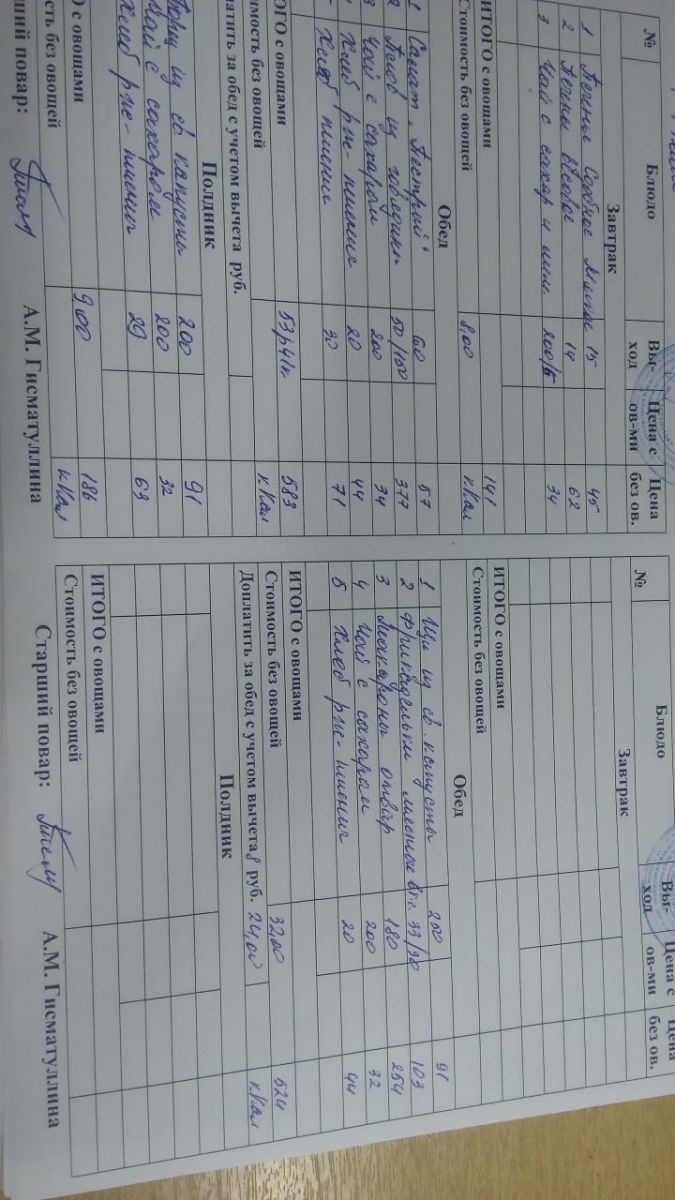 № Блюдо Вы-ход Цена с ов-ми Цена без ов.
Завтрак
1 Печенье Сдобное 15 45
2 Печенье весовое 14 62
3 Чай с сахар и лим. 200/5 34
ИТОГО с овощами 141
Стоимость без овощей 8,00 к.Кал
Обед
1 Салат "Пестрый" 60 57
2 Плов из говядин 50/150 377
3 Чай с сахаром 200 34
Хлеб рже-пшения 20 44
Хлеб пшения 30 71
ИТОГО с овощами 583
Стоимость без овощей 53р41к к.Кал
Доплатить за обед с учетом вычета руб.
Полдник
Борщ из св капусты 200 91
Чай с сахаром 200 32
Хлеб рже-пшенич 29 63
О с овощами 186
сть без овощей 9,00 к.Кал
ший повар: А.М. Гисматуллина
№ Блюдо Вы-ход Цена с ов-ми Цена без ов.
Завтрак
ИТОГО с овощами
Стоимость без овощей
Обед
1 Щи из св. капусты 250 91
2 Фрикадельки мясные 33/30 103
3 Макароны отвар 180 254
4 Чай с сахаром 200 32
5 Хлеб рже-пшения 20 44
ИТОГО с овощами 524
Стоимость без овощей 32,00 к.Кал
Доплатить за обед с учетом вычета 8 руб. 24,00
Полдник
ИТОГО с овощами
Стоимость без овощей
Старший повар: А.М. Гисматуллина